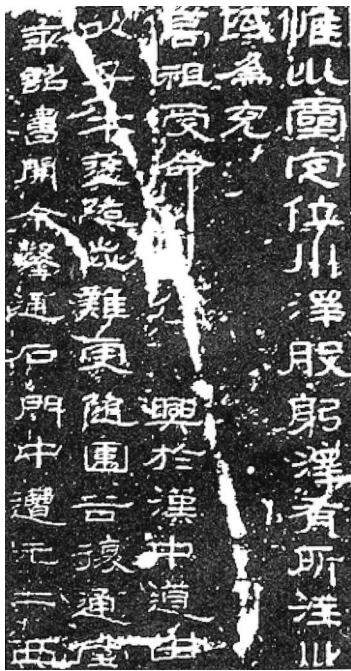 惟巛靈定位川澤股躬澤有所注川
域為充
高祖受命興於漢中道由
以子午塗路歰難更隨圍谷復通堂
年詔書開余鑿通石門中遭元二西